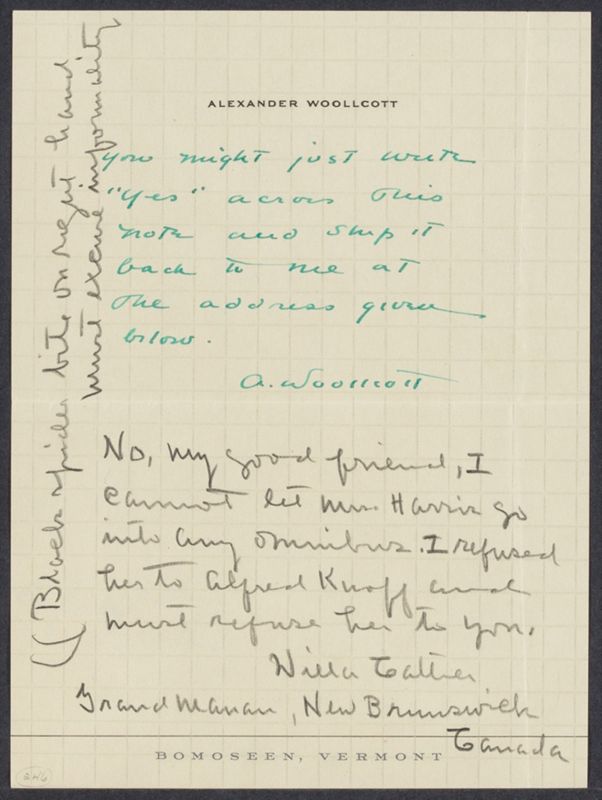 ALEXANDER WOOLLCOTT
you might just write
"Yes" across this
note and ship it
back to me at
the address given
below.
A. Woollcott
No, my good friend, I
cannot let Mrs. Harris go
into any omnibus. I refused
her to Alfred Knopf and
must refuse her to you.
Willa Cather
Grand Manan, New Brunswick
Canada
BOMOSEEN, VERMONT
((Black spider bite on right hand
must excuse informality
246